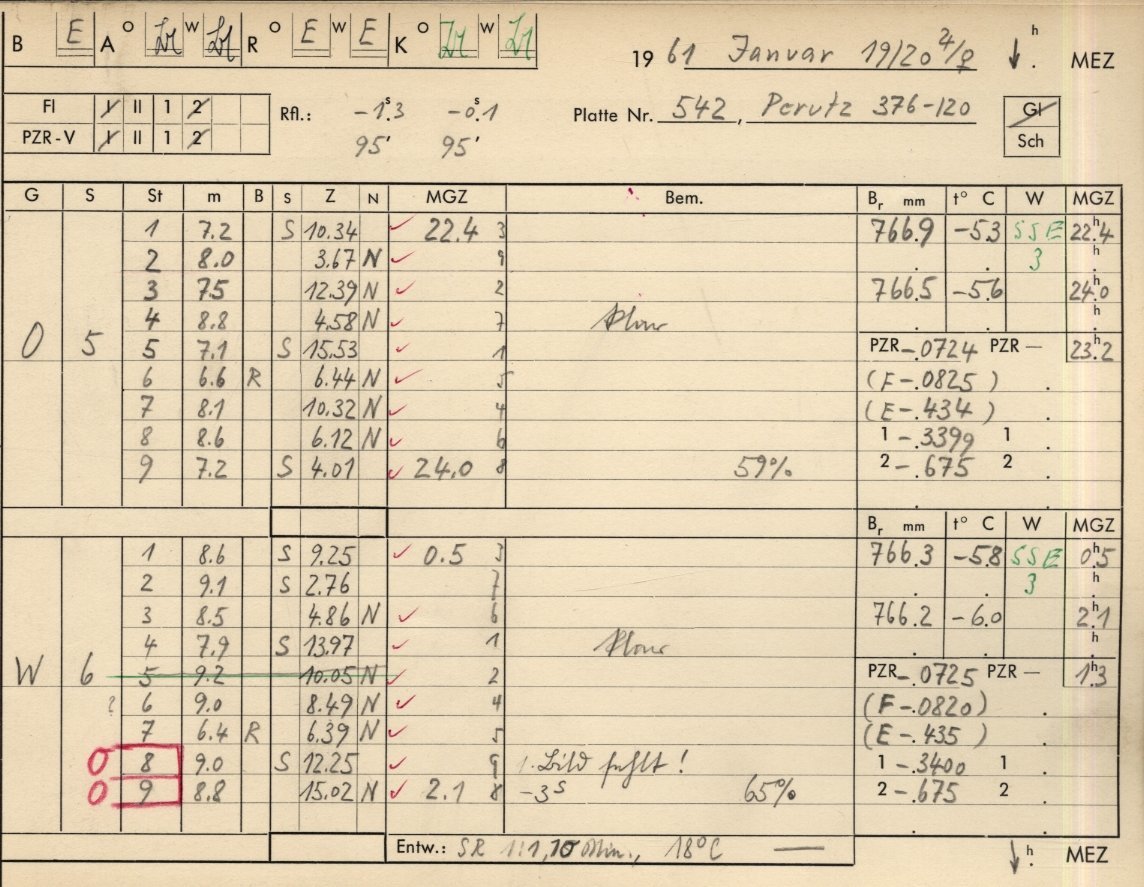 B E A o w R o E w E K o w 19 61 Januar 19/20 ♃/♀ h . MEZ
Fl I II 1 2 Rfl.: -1ˢ.3 -0ˢ.1 Platte Nr. 542, Perutz 376-120 Gl
PZR-V I II 1 2 95' 95' Sch
G S St m B S Z N MGZ Bem. Bᵣ mm t° C W MGZ
1 7.2 S 10.34 ✓ 22.4 3 766.9 -5.3 SSE 22ʰ.4
2 8.0 3.67 N ✓ 9 . . 3 ʰ.
3 7.5 12.39 N ✓ 2 766.5 -5.6 24ʰ.0
4 8.8 4.58 N ✓ 7 . . ʰ.
O 5 5 7.1 S 15.53 ✓ 1 PZR -.0724 PZR — 23ʰ.2
6 6.6 R 6.44 N ✓ 5 (F-.0825 ) .
7 8.1 10.32 N ✓ 4 (E-.434 ) .
8 8.6 6.12 N ✓ 6 1 -.3399 1 .
9 7.2 S 4.01 ✓ 24.0 8 59% 2 -.675 2 .
Bᵣ mm t° C W MGZ
1 8.6 S 9.25 ✓ 0.5 3 766.3 -5.8 SSE 0ʰ.5
2 9.1 S 2.76 7 . . 3 ʰ.
3 8.5 4.86 N ✓ 6 766.2 -6.0 2ʰ.1
4 7.9 S 13.97 ✓ 1 . . ʰ.
W 6 5 9.2 10.05 N ✓ 2 PZR -.0725 PZR — 1ʰ.3
? 6 9.0 8.49 N ✓ 4 (F-.0820) .
7 6.4 R 6.39 N ✓ 5 (E-.435 ) .
0 8 9.0 S 12.25 ✓ 9 1. Bild fehlt! 1 -.3400 1 .
0 9 8.8 15.02 N ✓ 2.1 8 -3ˢ 65% 2 -.675 2 .
Entw.: SR 1:1, 10 Min., 18°C — h . MEZ